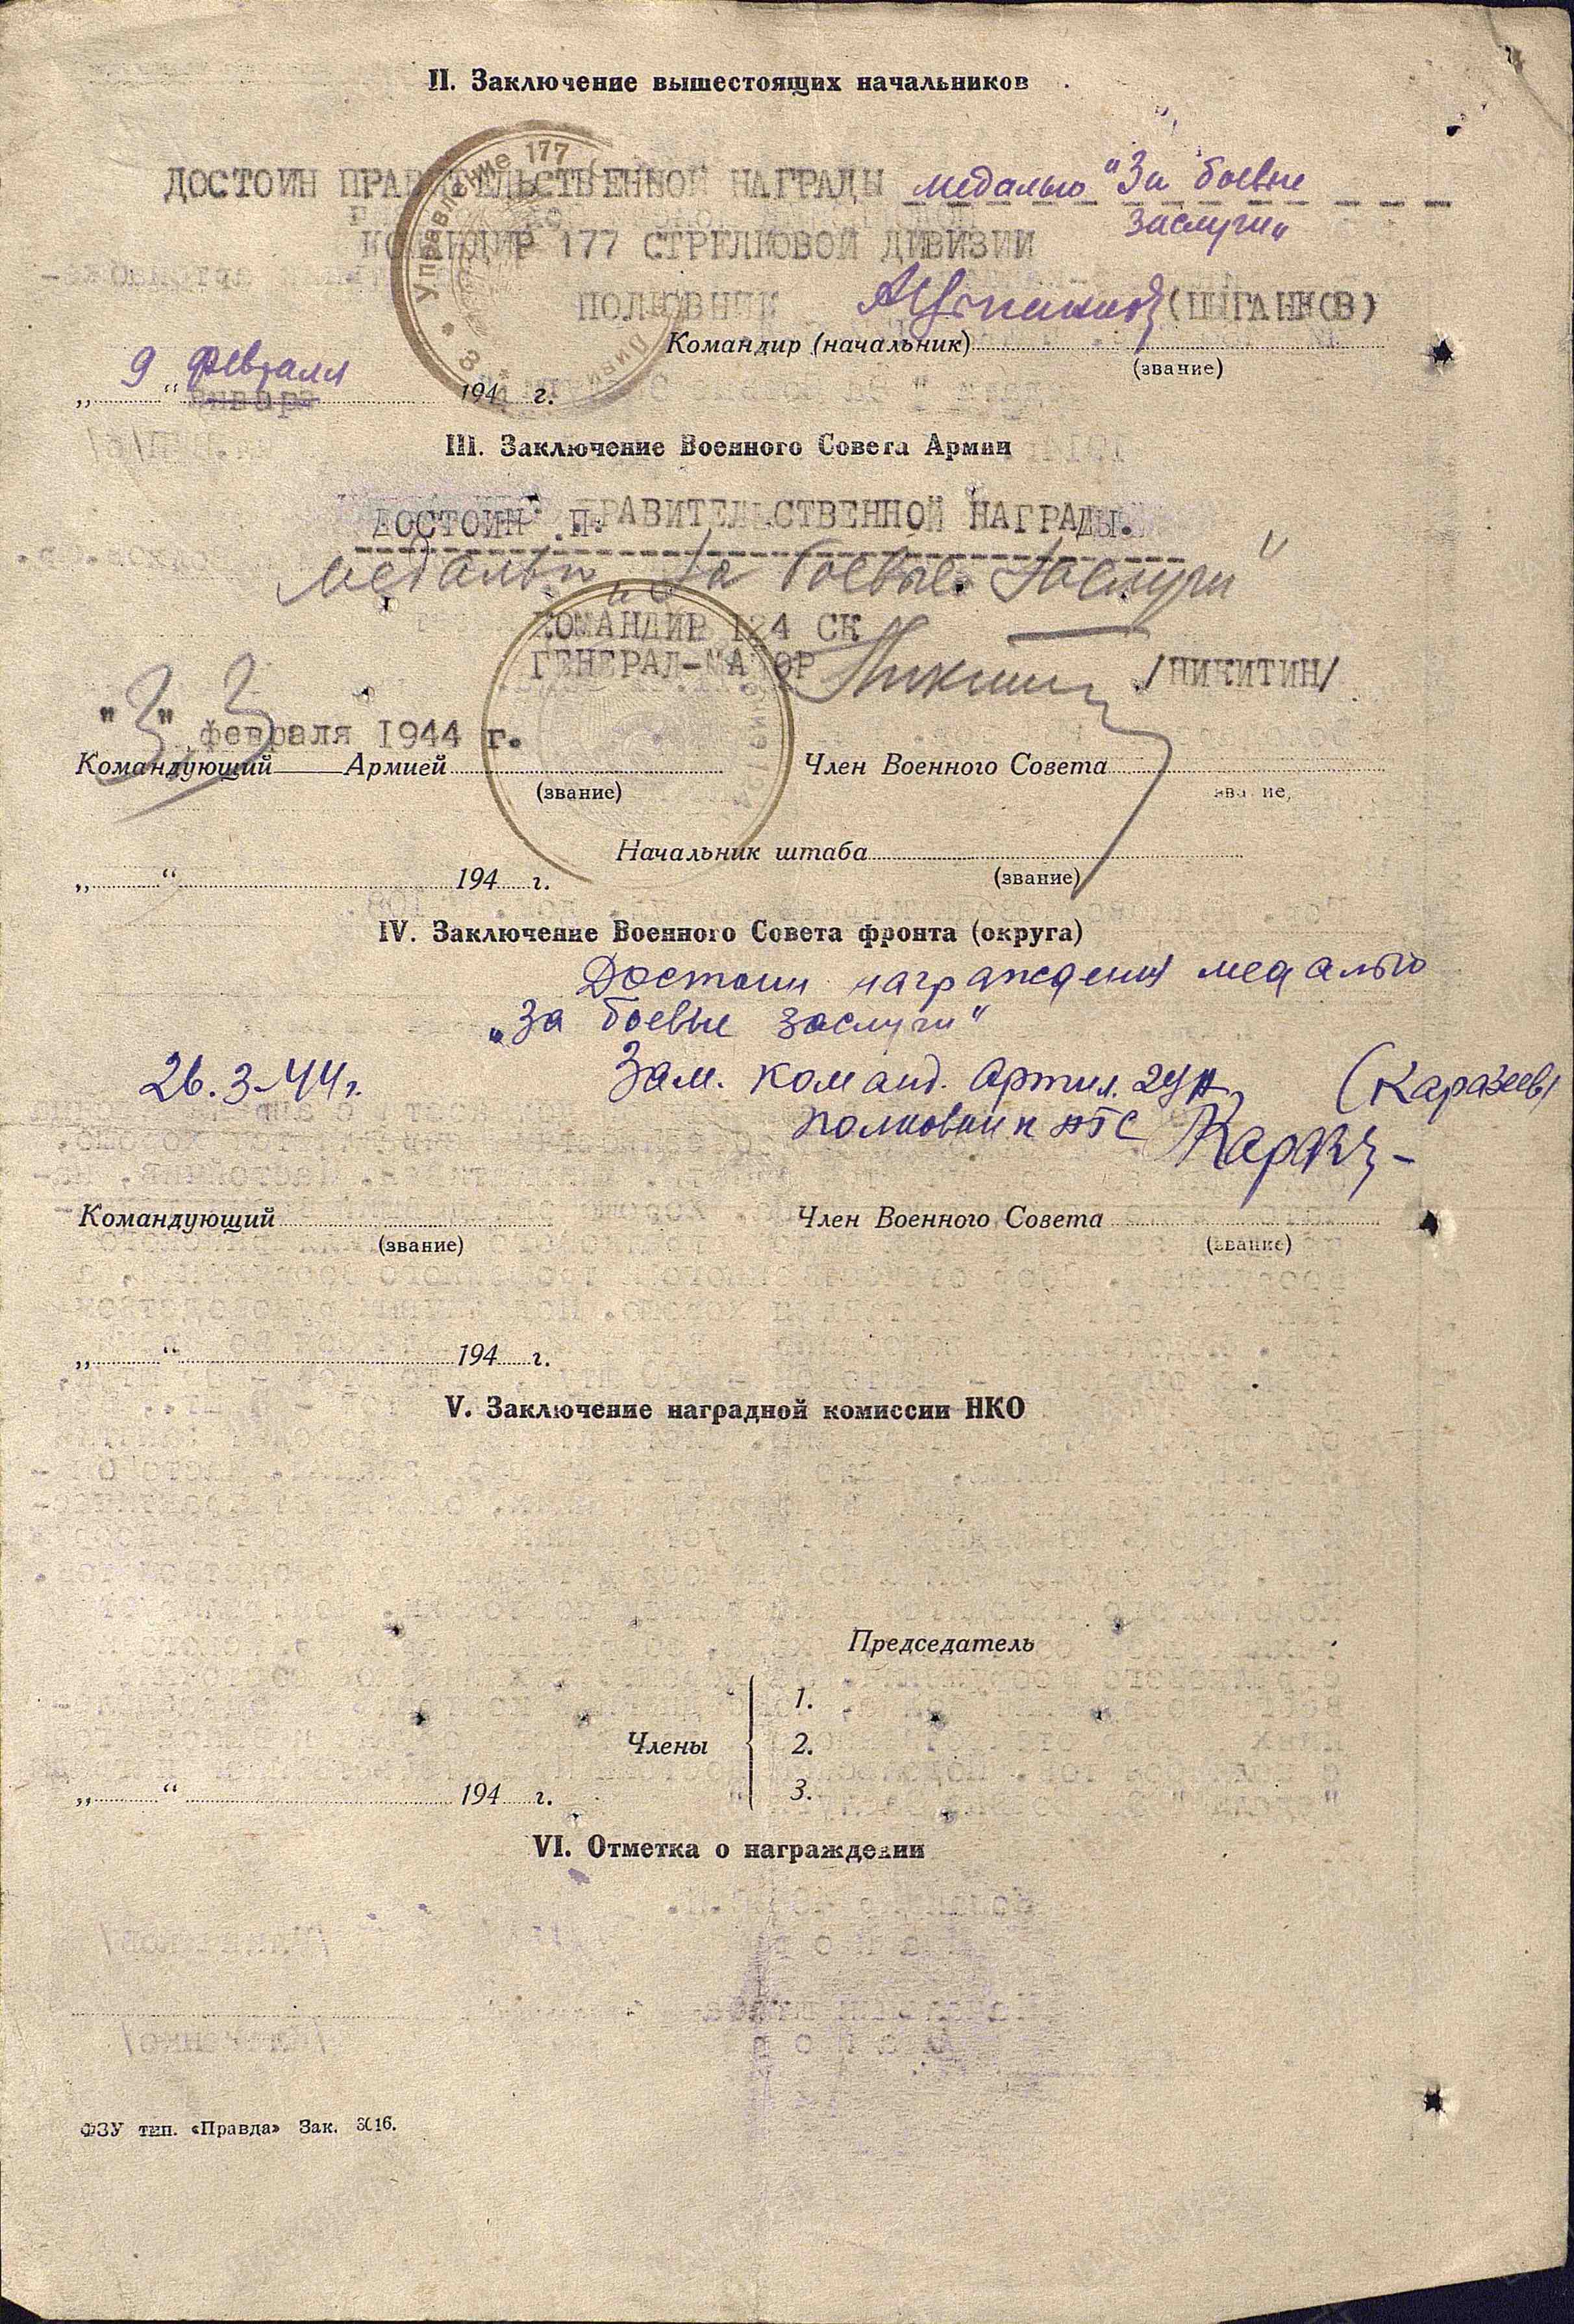 II. Заключение вышестоящих начальников
ДОСТОИН ПРАВИТЕЛЬСТВЕННОЙ НАГРАДЫ медалью "За боевые
заслуги"
КОМАНДИР 177 СТРЕЛКОВОЙ ДИВИЗИИ
ПОЛКОВНИК (ЦЫГАНКОВ)
Управление 177
Командир (начальник)
(звание)
9 февраля
января
„ “ 194 г.
III. Заключение Военного Совета Армии
ДОСТОИН ПРАВИТЕЛЬСТВЕННОЙ НАГРАДЫ.
медалью „За боевые заслуги"
КОМАНДИР 124 СК
ГЕНЕРАЛ-МАЙОР Никитин /НИКИТИН/
" " февраля 1944 г.
Командующий Армией Член Военного Совета
(звание)
Начальник штаба
(звание)
„ “ 194 г.
IV. Заключение Военного Совета фронта (округа)
Достоин награждения медалью
„За боевые заслуги"
26.3.44г. Зам. команд. Артил.
(Каразеев)
полковник
Командующий Член Военного Совета
(звание) (звание)
„ “ 194 г.
V. Заключение наградной комиссии НКО
Председатель
1.
Члены 2.
3.
„ “ 194 г.
VI. Отметка о награждении
ФЗУ тип. «Правда» Зак. 3016.